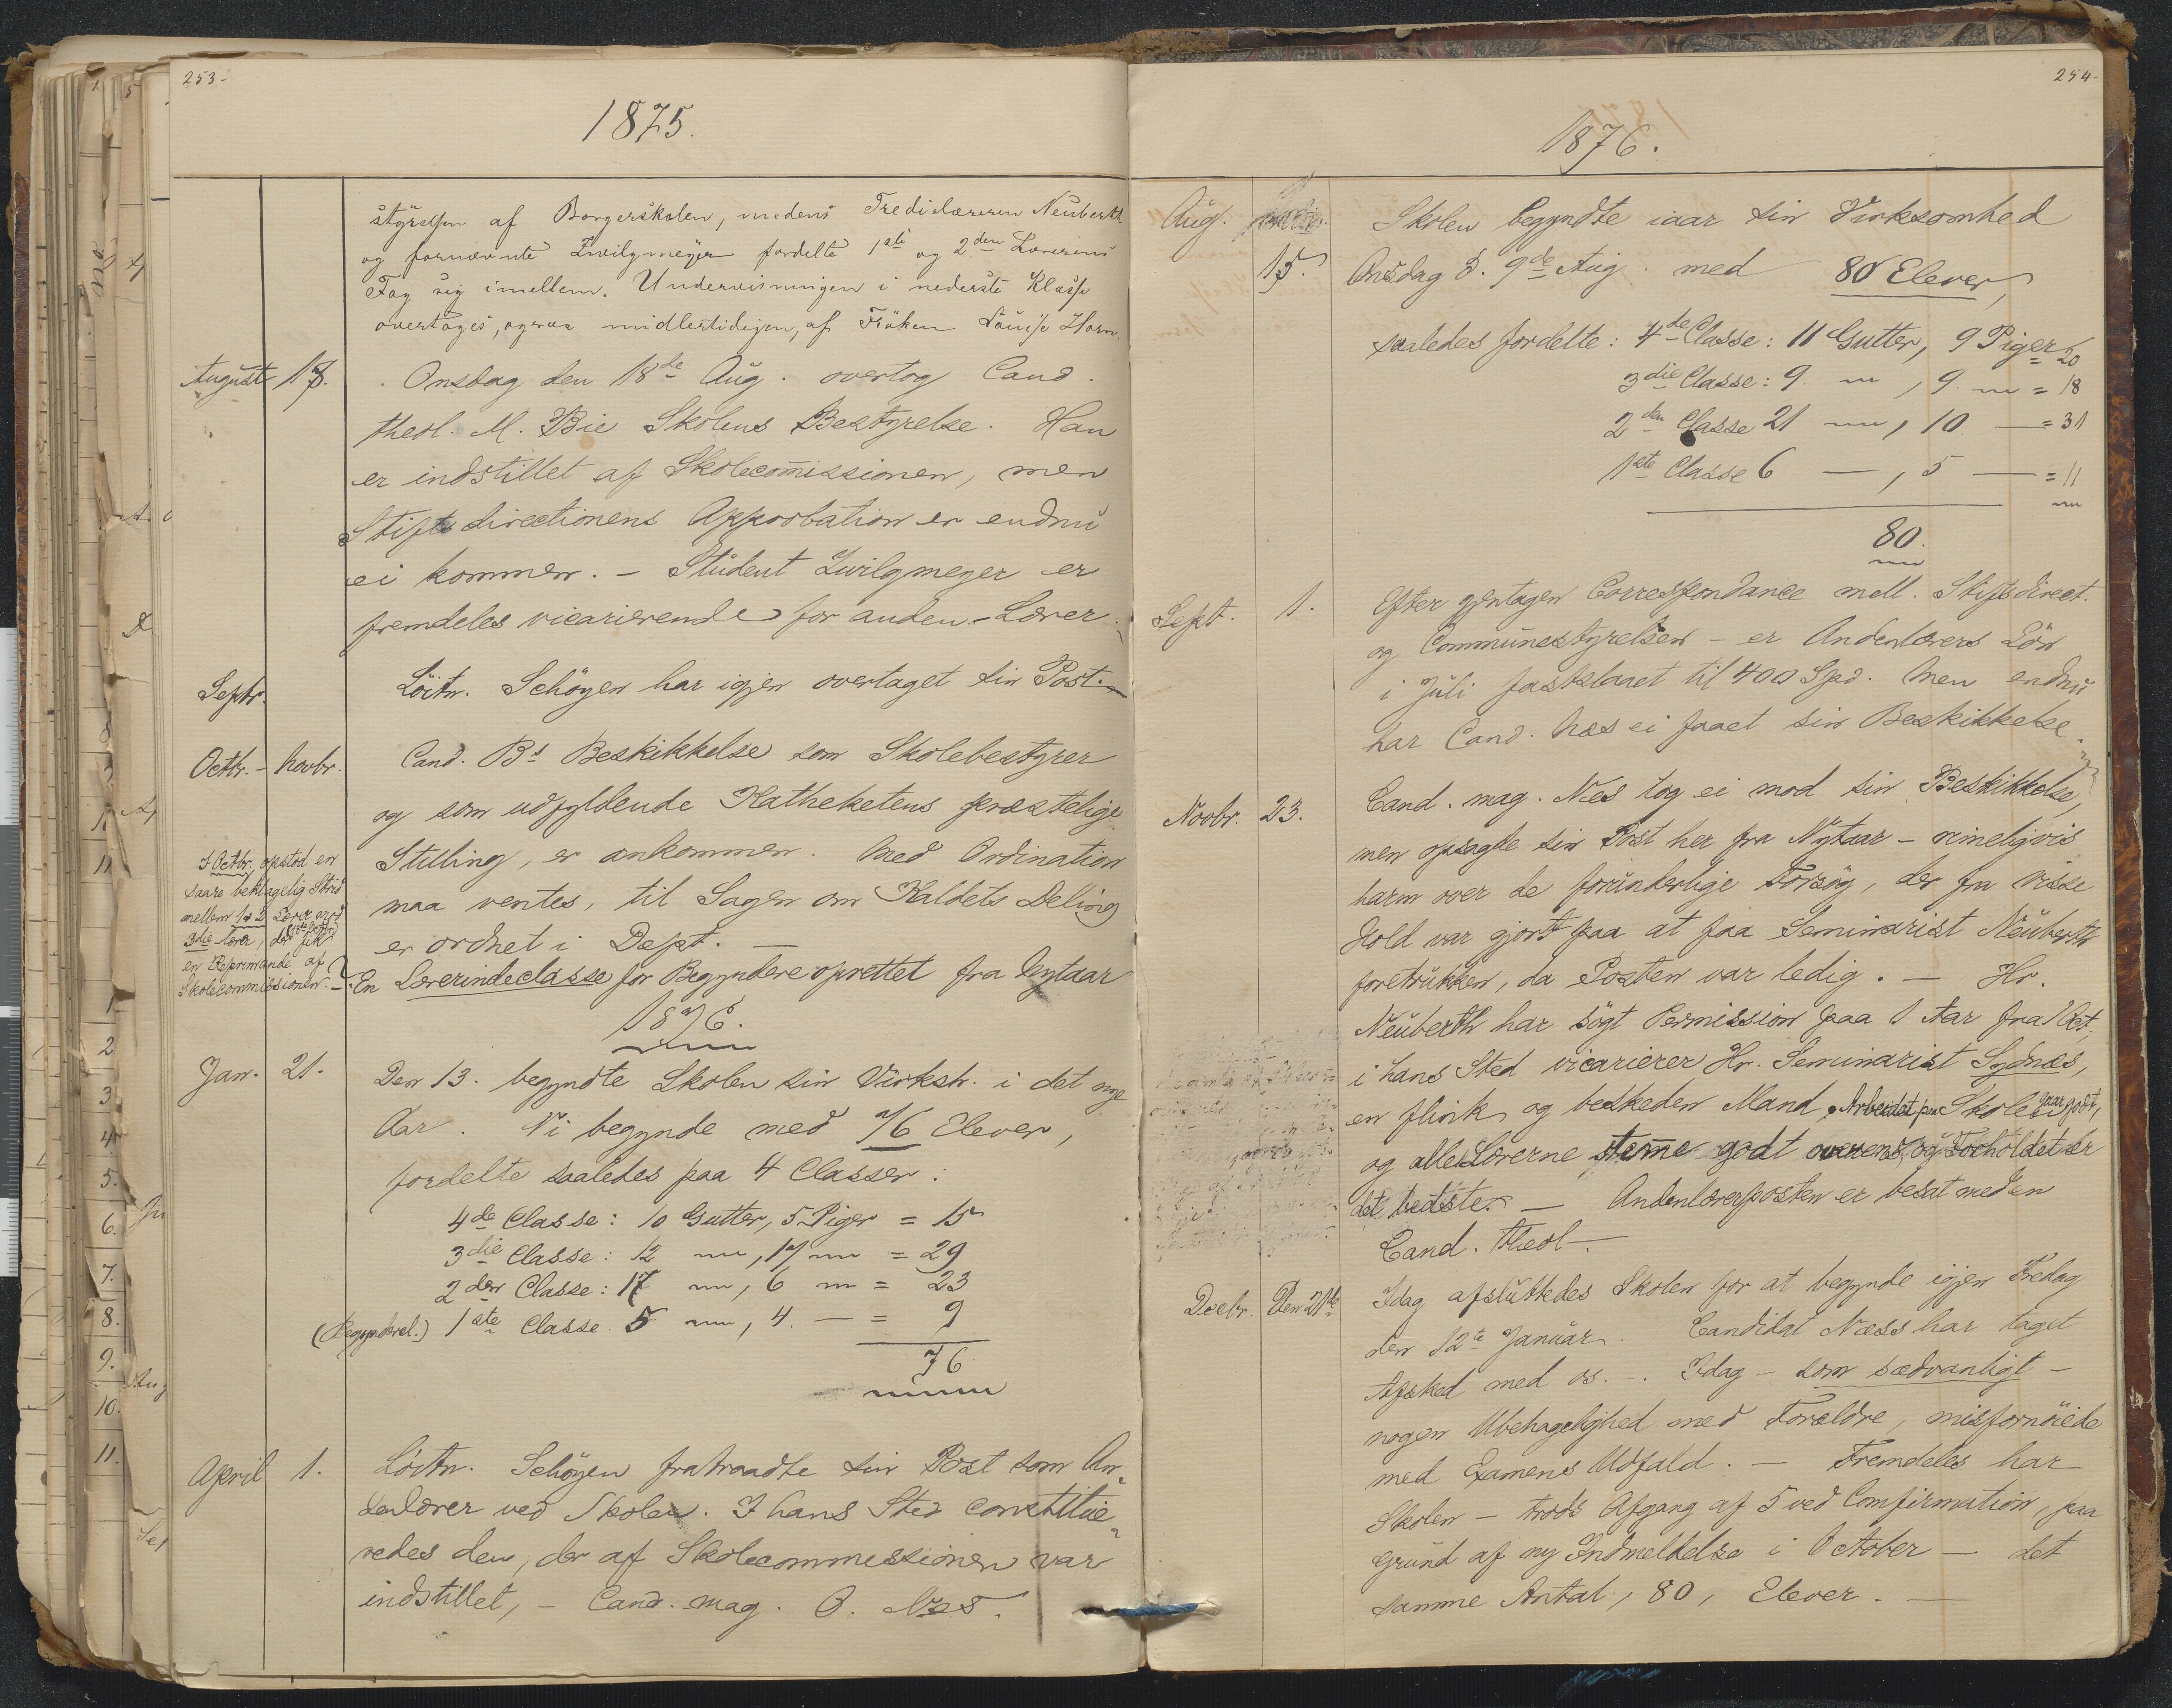 253-
1875.
styrelsen af Borgerskolen, medens Tredielæreren Neuberth
og fornævnte Zwilgmeyer fordelte 1ste og 2den Lærerens
Fag sig imellem. Undervisningen i nederste Klasse
overtoges, ogsaa midlertidigen, af Fröken Louise Horn.
August 18. Onsdag den 18de Aug. overtog Cand.
theol. M. Bie Skolens Bestyrelse. Han
er indstillet af Skolecom̄issionen, men
Stiftsdirectionens Approbation er endnu
ei kommen. - Student Zwilgmeyer er
fremdeles vicarierende for anden-Lærer.
Septr. Löitn. Schöyen har igjen overtaget sin Post. -
Octbr. - Novbr. Cand. Bs Beskikkelse som Skolebestyrer
og som udfyldende Kathekетens præstelige
Stilling, er ankommen. Med Ordination
maa ventes, til Sagen om Kaldets Deling
er ordnet i Dept. -
I Octbr. opstod en
saare beklagelig Strid
mellem 1 & 2 Lærer mod
3die Lærer, der fik
en Reprimande af
Skolecommissionen. -
En Lærerindeclasse for Begyndere oprettet fra Nytaar
1876.
Jan. 21. Den 13. begyndte Skolen sin Virksh. i det nye
Aar. Vi begynde med 76 Elever,
fordelte saaledes paa 4 Classer:
4de Classe: 10 Gutter, 5 Piger = 15
3die Classe: 12 〃, 17 〃 = 29
2den Classe: 17 〃, 6 〃 = 23
(Begyndercl.) 1ste Classe 5 〃, 4. - = 9
76
April 1. Löitn. Schöyen fratraadte sin Post som An-
denlærer ved Skolen. I hans Sted constitue-
redes den, der af Skolecommissionen var
indstillet, - Cand. mag. O. Næs.
254-
1876.
Aug. 15. Skolen begyndte iaar sin Virksomhed
Onsdag d. 9de Aug. med 80 Elever,
saaledes fordelte: 4de Classe: 11 Gutter, 9 Piger = 20
3die Classe: 9 〃, 9 〃 = 18
2den Classe 21 〃, 10 - = 31
1ste Classe 6 -, 5 - = 11
80.
Sept. 1. Efter gjentagen Correspondance mell. Stiftsdirect.
og Communestyrelsen - er Andenlærers Lön
i Juli fastslaaet til 400 Spd. Men endnu
har Cand. Næs ei faaet sin Beskikkelse.
Novbr. 23. Cand. mag. Næs tog ei mod sin Beskikkelse,
men opsagde sin Post her fra Nytaar - rimeligvis
harm over de forunderlige Forsög, der fra visse
Hold var gjort paa at faa Seminarist Neuberth
foretrukken, da Posten var ledig. - Hr.
Neuberth har sögt Permission paa 1 Aar fra 1 Oct.,
i hans Sted vicarierer Hr. Seminarist Sydnæs,
en flink og beskeden Mand. Arbeidet paa Skolen gaar godt,
og alle Lærerne stem̄e godt overens, og Forholdet er
det bedste. - Andenlærerposten er besat med en
Cand. theol. -
Decbr. Den 21de Idag afsluttedes Skolen for at begynde igjen Fredag
den 12te Januar. Candidat Næss har taget
Afsked med os. -. Idag - som sædvanligt -
nogen Ubehagelighed med Forældre, misfornöiede
med Examens Udfald. - Fremdeles har
Skolen - trods Afgang af 5 ved Comfirmation, paa
Grund af ny Indmeldelse i October - det
samme Antal, 80, Elever. -